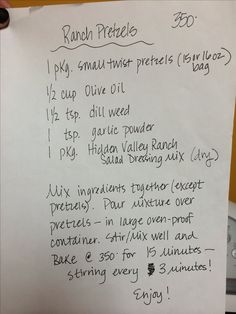 Ranch Pretzels
350°
1 pkg. small twist pretzels (15 or 16 oz bag)
1/2 cup Olive Oil
1 1/2 tsp. dill weed
1 tsp. garlic powder
1 pkg. Hidden Valley Ranch
Salad Dressing Mix (dry)
Mix ingredients together (except
pretzels). Pour mixture over
pretzels – in large oven-proof
container. Stir/mix well and
Bake @ 350° for 15 minutes –
stirring every 3 minutes!
Enjoy!